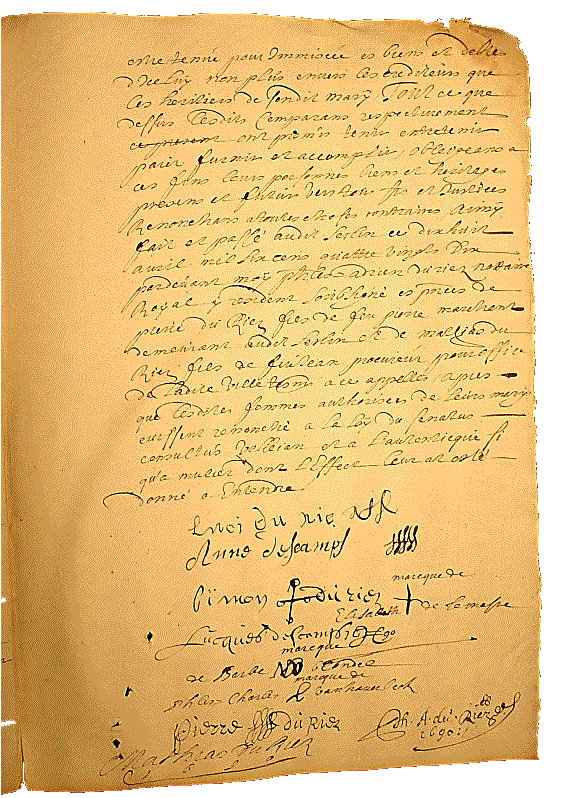 estre tenue pour Immiscée es biens et debtes
d'Iceluy non plus envers les crediteurs que
les heritiers de sondit mary Tout ce que
dessus lesdits Comparans respectivement
ce present ont promis tenir entretenir
paier furnir et accomplir, obligeans a
ces fins leurs personnes biens et heritages
presens et futurs vers tous srs et Justices
Renonchans a toutes choses contraires Ainsy
fait et passé audit Seclin ce dixhuit
avril mil six cens quattre vingts dix
pardevant moy phles Adrien du riez nottaire
Royal y resident soubsigné es pnces de
pierre du Riez fils de feu pierre marchant
demeurant audit Seclin et de mathias du
Riez fils de feu Jean procureur pour office
de ladite ville tesmoins a ce appellés apres
que lesdites femmes authorisees de leurs marys
eussent renonché a la loy du senatus
consultus velleian et a l'autenticque si
qua mulier dont l'Effect leur at esté
donné a Entendre
Enoi du riez
Anne descamps
marcque de
Simon du riez
Elisabeth de le masre
Lucques descamps 1690
marcque
de Barbe blondel
marcque de
phles Charles vanhazebrock
Pierre du Riez
Ph. A. du Riez
1690
Mathias du Riez